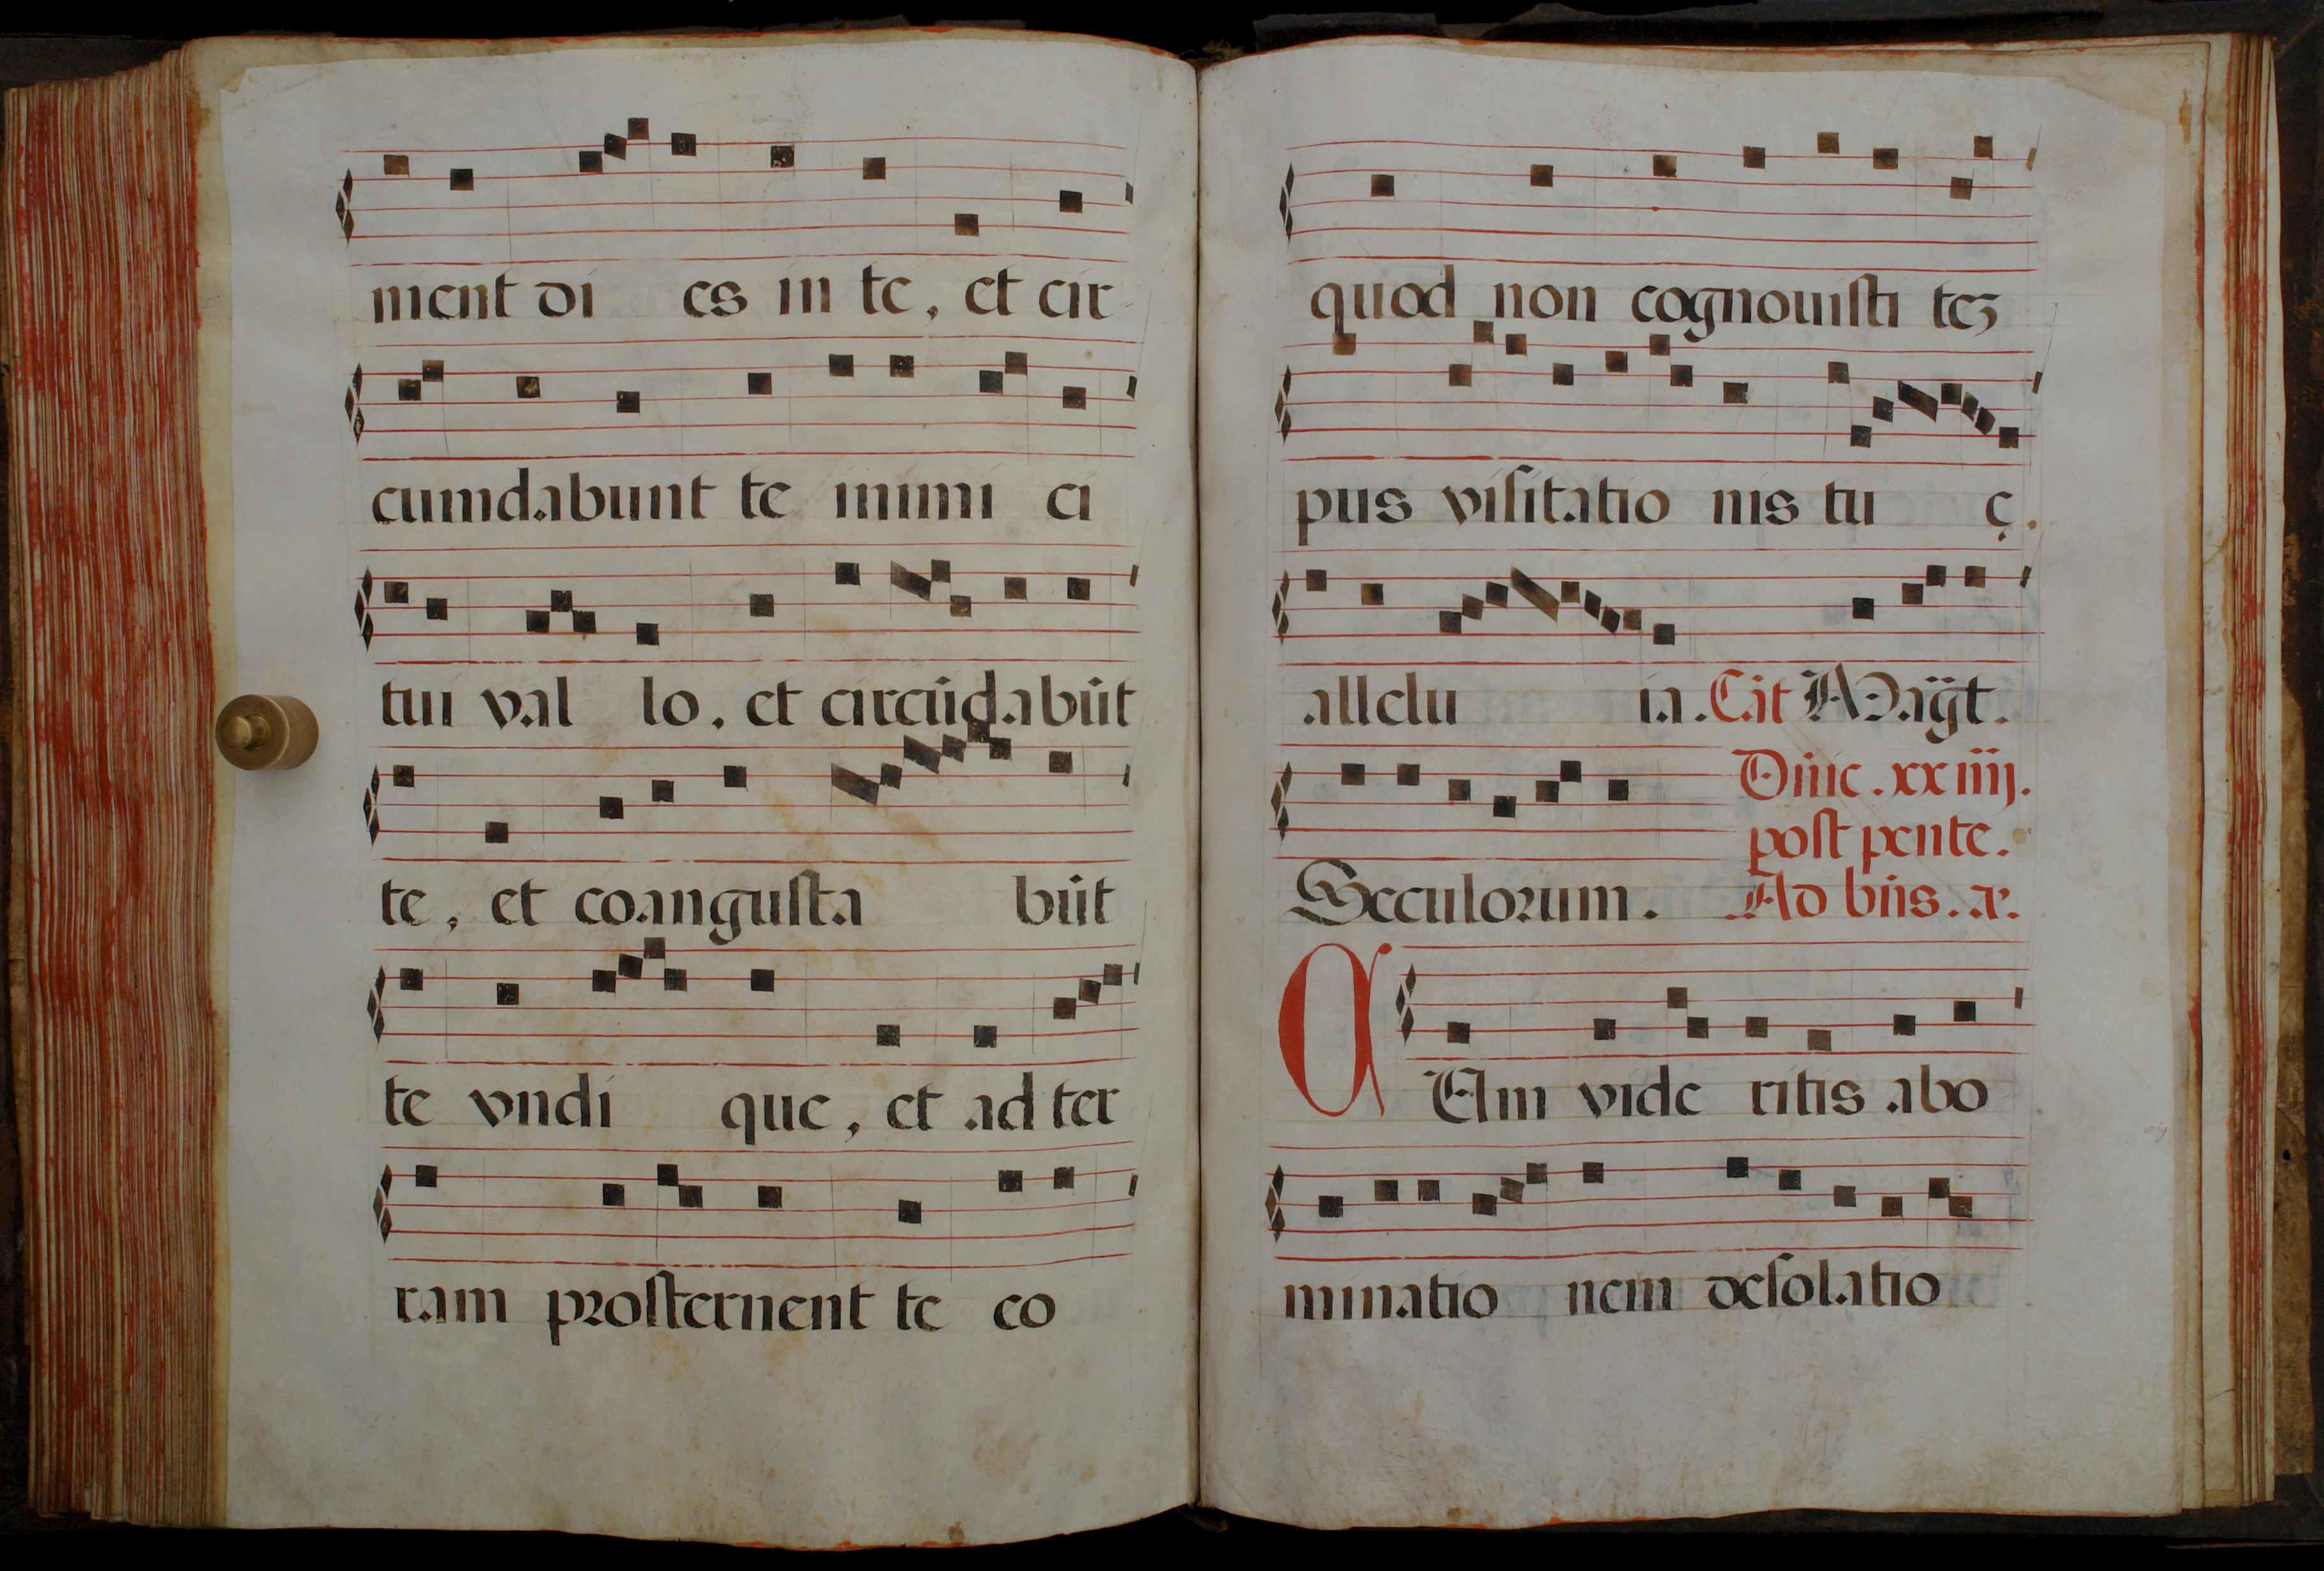 nient di es in te, et cir-
cumdabunt te inimi ci
tui val lo, et circūdabūt
te, et coangusta būt
te vndi que, et ad ter-
ram prosternent te eo
quod non cognouisti teʒ
pus visitatio nis tu ę.
allelu ia. Cāt Magt.
Dn̄ic. xxiiij.
post pente.
Seculorum. Ad bn̄s. añ.
CVm vide ritis abo-
minatio nem desolatio